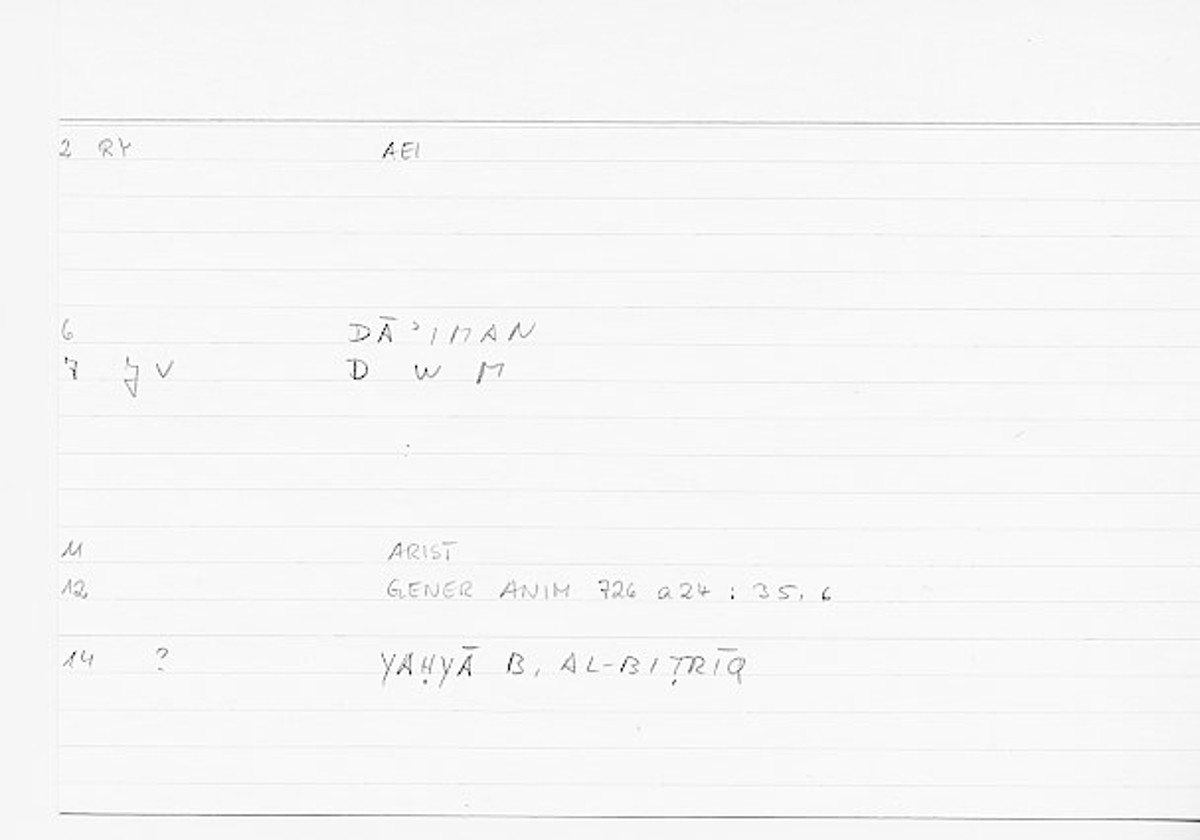 2 RY AEI
6 DĀʾIMAN
7 JV D W M
11 ARIST
12 GENER ANIM 726 a24 : 35, 6
14 ? YAḤYĀ B, AL-BIṬRĪQ